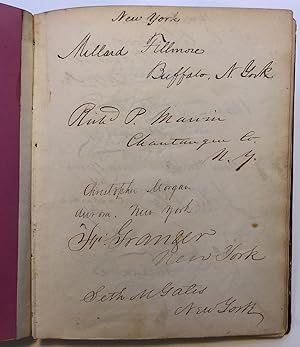 New York
Millard Fillmore
Buffalo, N York
Richd P. Marvin
Chautauque Co.
N. Y.
Christopher Morgan
Aurora. New York
Fr. Granger
New York
Seth M Gates
New York